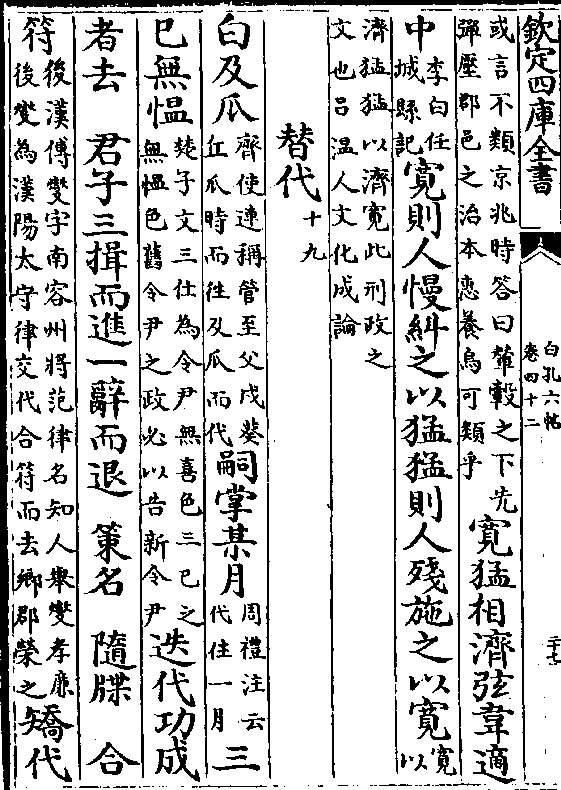 欽定四庫全書
白孔六帖
卷四十二
二十七
或言不類京兆時答曰輦轂之下先
彈壓郡邑之治本惠養烏可類乎
寛猛相濟弦韋適
中
李白任
城縣記
寛則人慢糾之以猛猛則人殘施之以寛
寛
以
濟猛猛以濟寛此刑政之
文也吕温人文化成論
替代十九
白及瓜
齊使連稱管至父戍葵
丘瓜時而徃及瓜而代
嗣掌某月
周禮注云
代住一月
三
已無愠
𨷖子文三仕為令尹無喜色三已之
無愠色舊令尹之政必以告新令尹
迭代功成
者去　君子三揖而進一辭而退　策名　隨牒　合
符
後漢傅燮字南容州將范律名知人舉燮孝廉
後燮為漢陽太守律交代合符而去鄉郡榮之
矯代